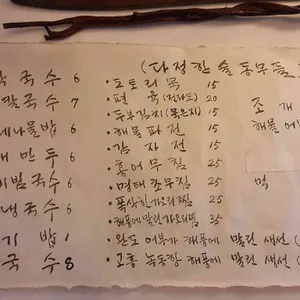 (다정한 술 동무들
국수 6
말국수 7
나물밥 6
만두 6
비빔국수 6
냉국수 6
기밥 1
국수 8
· 도토리묵 15
· 편육(전라도) 20
· 두부김치(묵은지) 15
· 해물파전 15
· 감자전 15
· 홍어무침 25
· 명태초무침 25
· 폭삭한가오리찜 25
· 해풍에말린가오리찜 35
· 완도 어부가 해풍에 말린 생선(
· 고흥 녹동항 해풍에 말린 생선(
조개
해물
먹